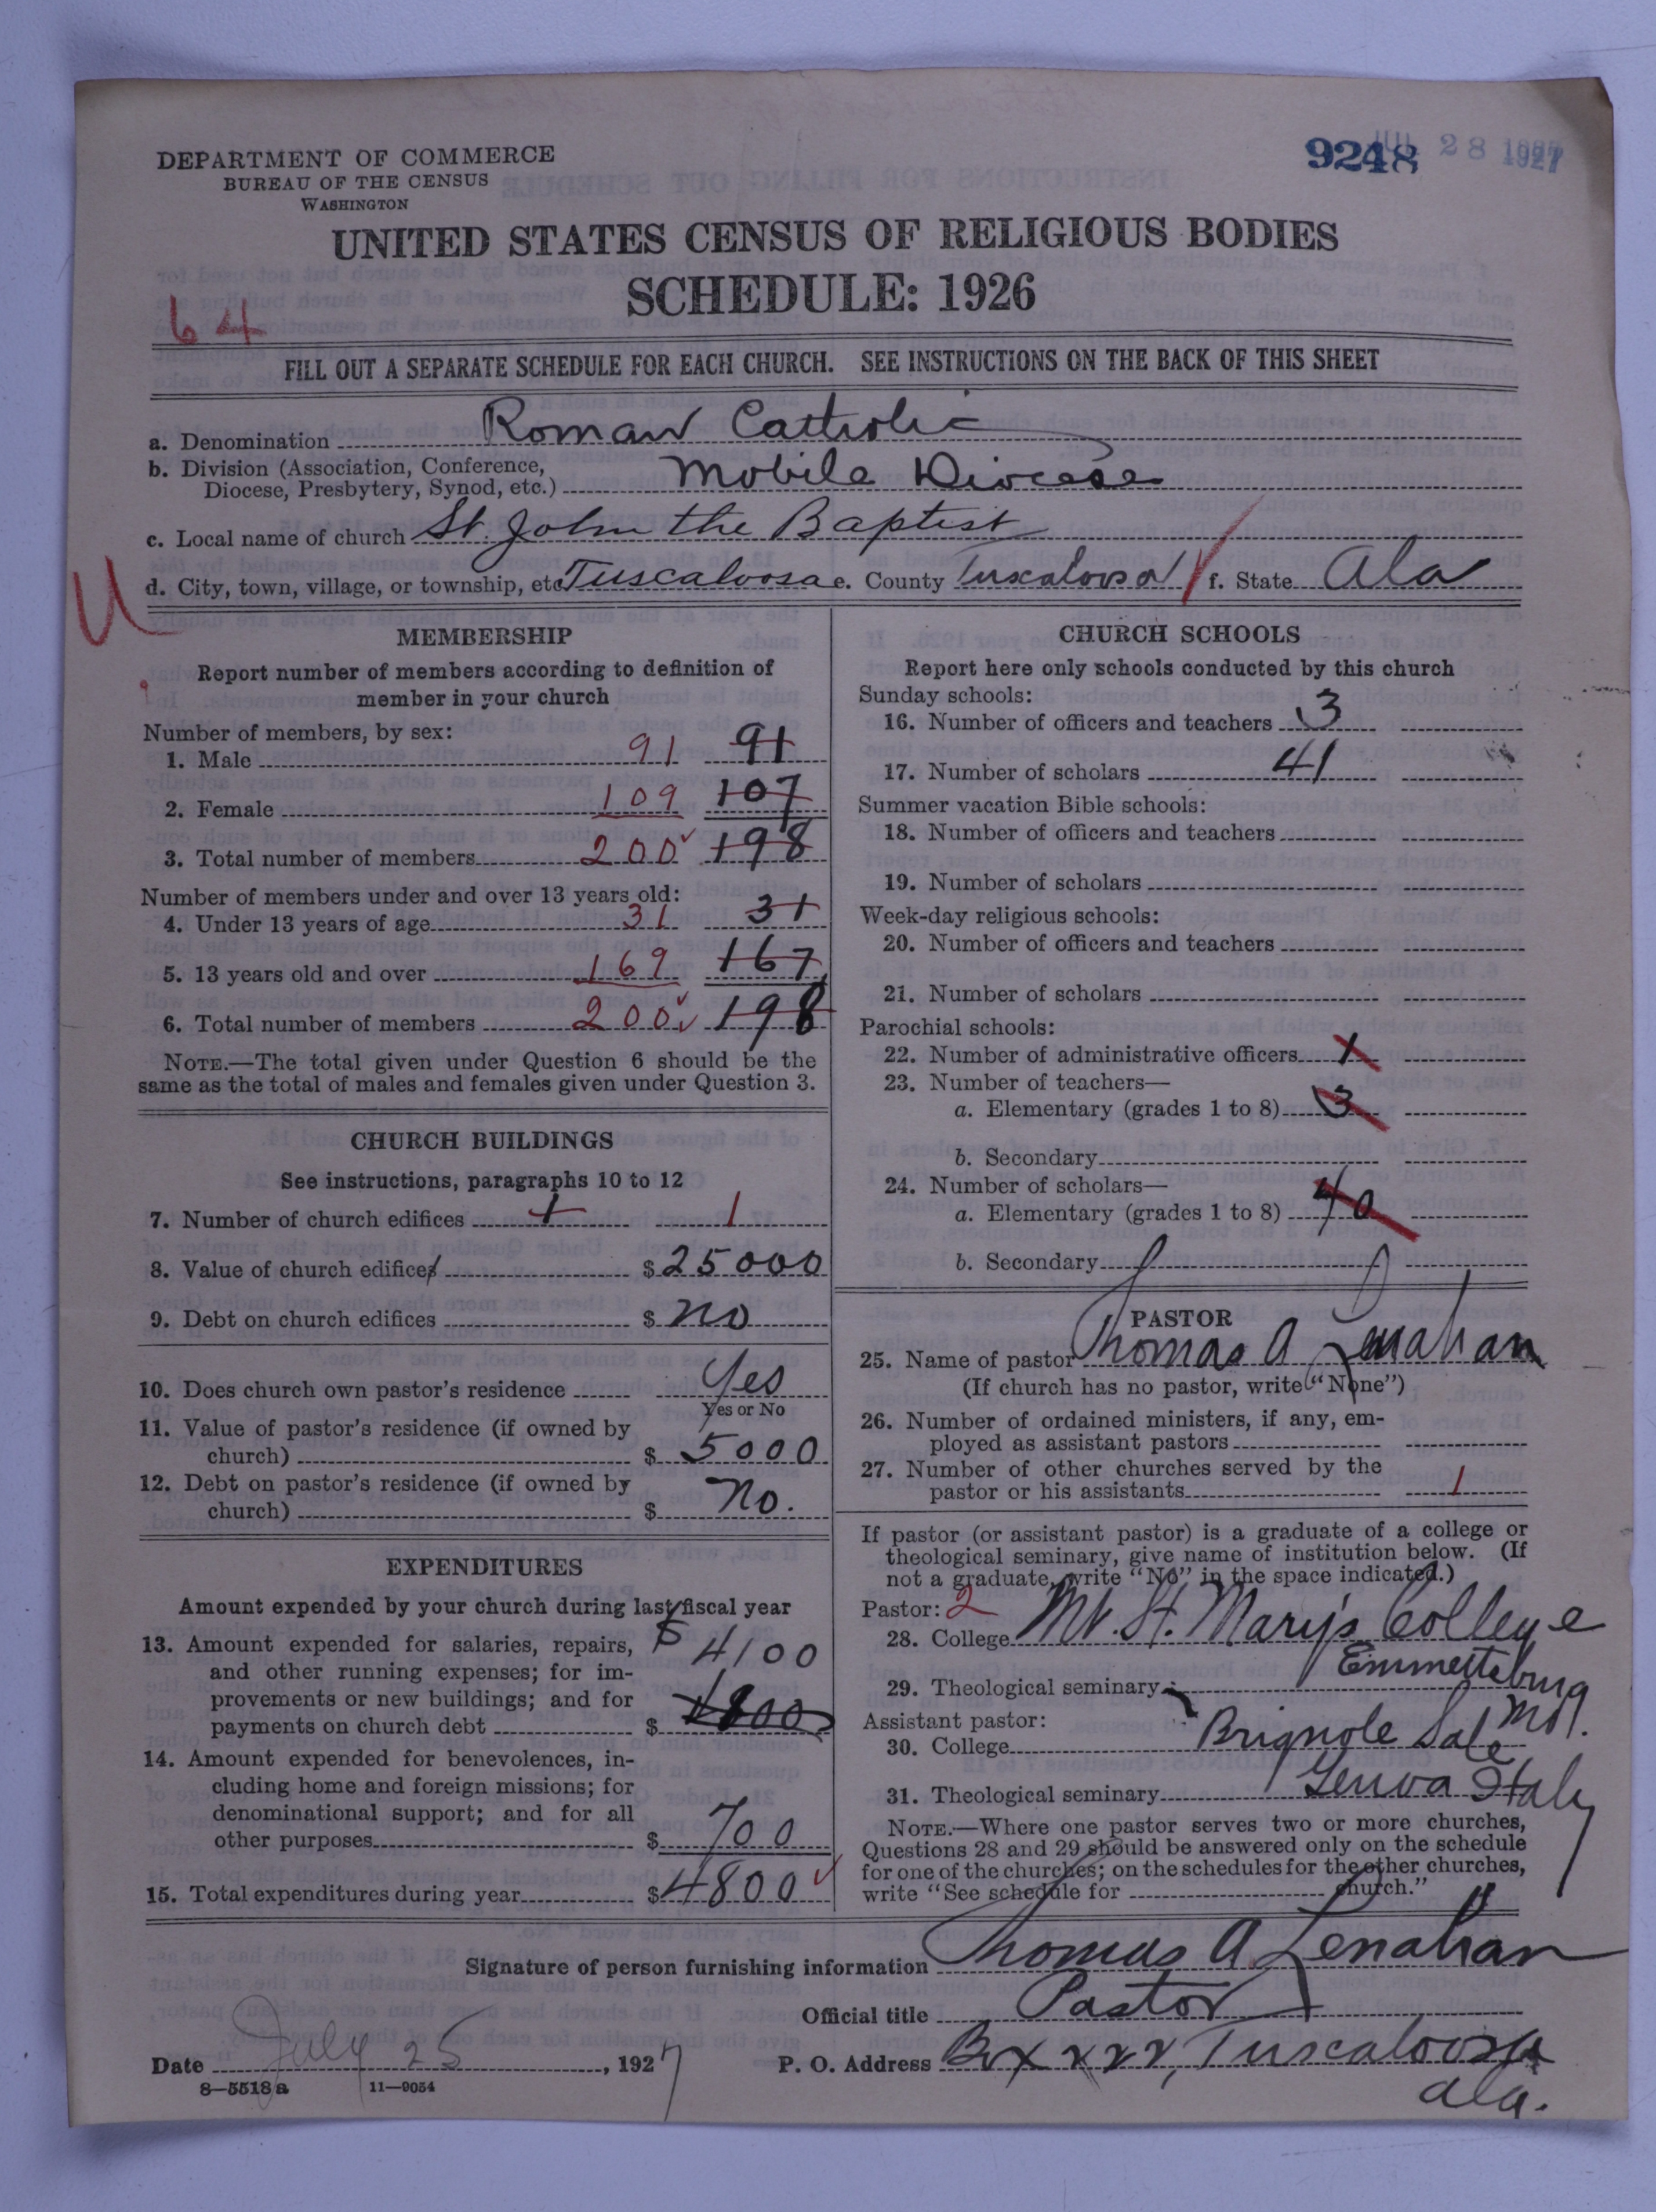 9248 JUL 28 1927
DEPARTMENT OF COMMERCE
BUREAU OF THE CENSUS
WASHINGTON
UNITED STATES CENSUS OF RELIGIOUS BODIES
SCHEDULE: 1926
64
FILL OUT A SEPARATE SCHEDULE FOR EACH CHURCH. SEE INSTRUCTIONS ON THE BACK OF THIS SHEET
a. Denomination Roman Catholic
b. Division (Association, Conference,
Diocese, Presbytery, Synod, etc.) Mobile Diocese
c. Local name of church St. John the Baptist
U
d. City, town, village, or township, etc. Tuscaloosa e. County Tuscaloosa f. State Ala
MEMBERSHIP
Report number of members according to definition of
member in your church
Number of members, by sex:
1. Male 91 91
2. Female 109 107
3. Total number of members 200 198
Number of members under and over 13 years old:
4. Under 13 years of age 31 31
5. 13 years old and over 169 167
6. Total number of members 200 198
NOTE.—The total given under Question 6 should be the
same as the total of males and females given under Question 3.
CHURCH BUILDINGS
See instructions, paragraphs 10 to 12
7. Number of church edifices 1 1
8. Value of church edifices $ 25000
9. Debt on church edifices $ no
10. Does church own pastor's residence Yes
Yes or No
11. Value of pastor's residence (if owned by
church) $ 5000
12. Debt on pastor's residence (if owned by
church) $ no.
EXPENDITURES
Amount expended by your church during last fiscal year
13. Amount expended for salaries, repairs, $ 4100
and other running expenses; for im-
provements or new buildings; and for
payments on church debt $ 4800
14. Amount expended for benevolences, in-
cluding home and foreign missions; for
denominational support; and for all
other purposes $ 700
15. Total expenditures during year $ 4800
CHURCH SCHOOLS
Report here only schools conducted by this church
Sunday schools:
16. Number of officers and teachers 3
17. Number of scholars 41
Summer vacation Bible schools:
18. Number of officers and teachers
19. Number of scholars
Week-day religious schools:
20. Number of officers and teachers
21. Number of scholars
Parochial schools:
22. Number of administrative officers 1
23. Number of teachers—
a. Elementary (grades 1 to 8) 3
b. Secondary
24. Number of scholars—
a. Elementary (grades 1 to 8) 40
b. Secondary
PASTOR
25. Name of pastor Thomas A Lenahan
(If church has no pastor, write "None")
26. Number of ordained ministers, if any, em-
ployed as assistant pastors
27. Number of other churches served by the
pastor or his assistants 1
If pastor (or assistant pastor) is a graduate of a college or
theological seminary, give name of institution below. (If
not a graduate, write "No" in the space indicated.)
Pastor: 2
28. College Mt. St. Mary's College
Emmettsburg
29. Theological seminary
Md.
Assistant pastor:
30. College Brignole Sale
31. Theological seminary Genoa Italy
NOTE.—Where one pastor serves two or more churches,
Questions 28 and 29 should be answered only on the schedule
for one of the churches; on the schedules for the other churches,
write "See schedule for church."
Signature of person furnishing information Thomas A Lenahan
Official title Pastor
Date July 25, 1927 P. O. Address Box Tuscaloosa
Ala.
8—5518 a 11—9054